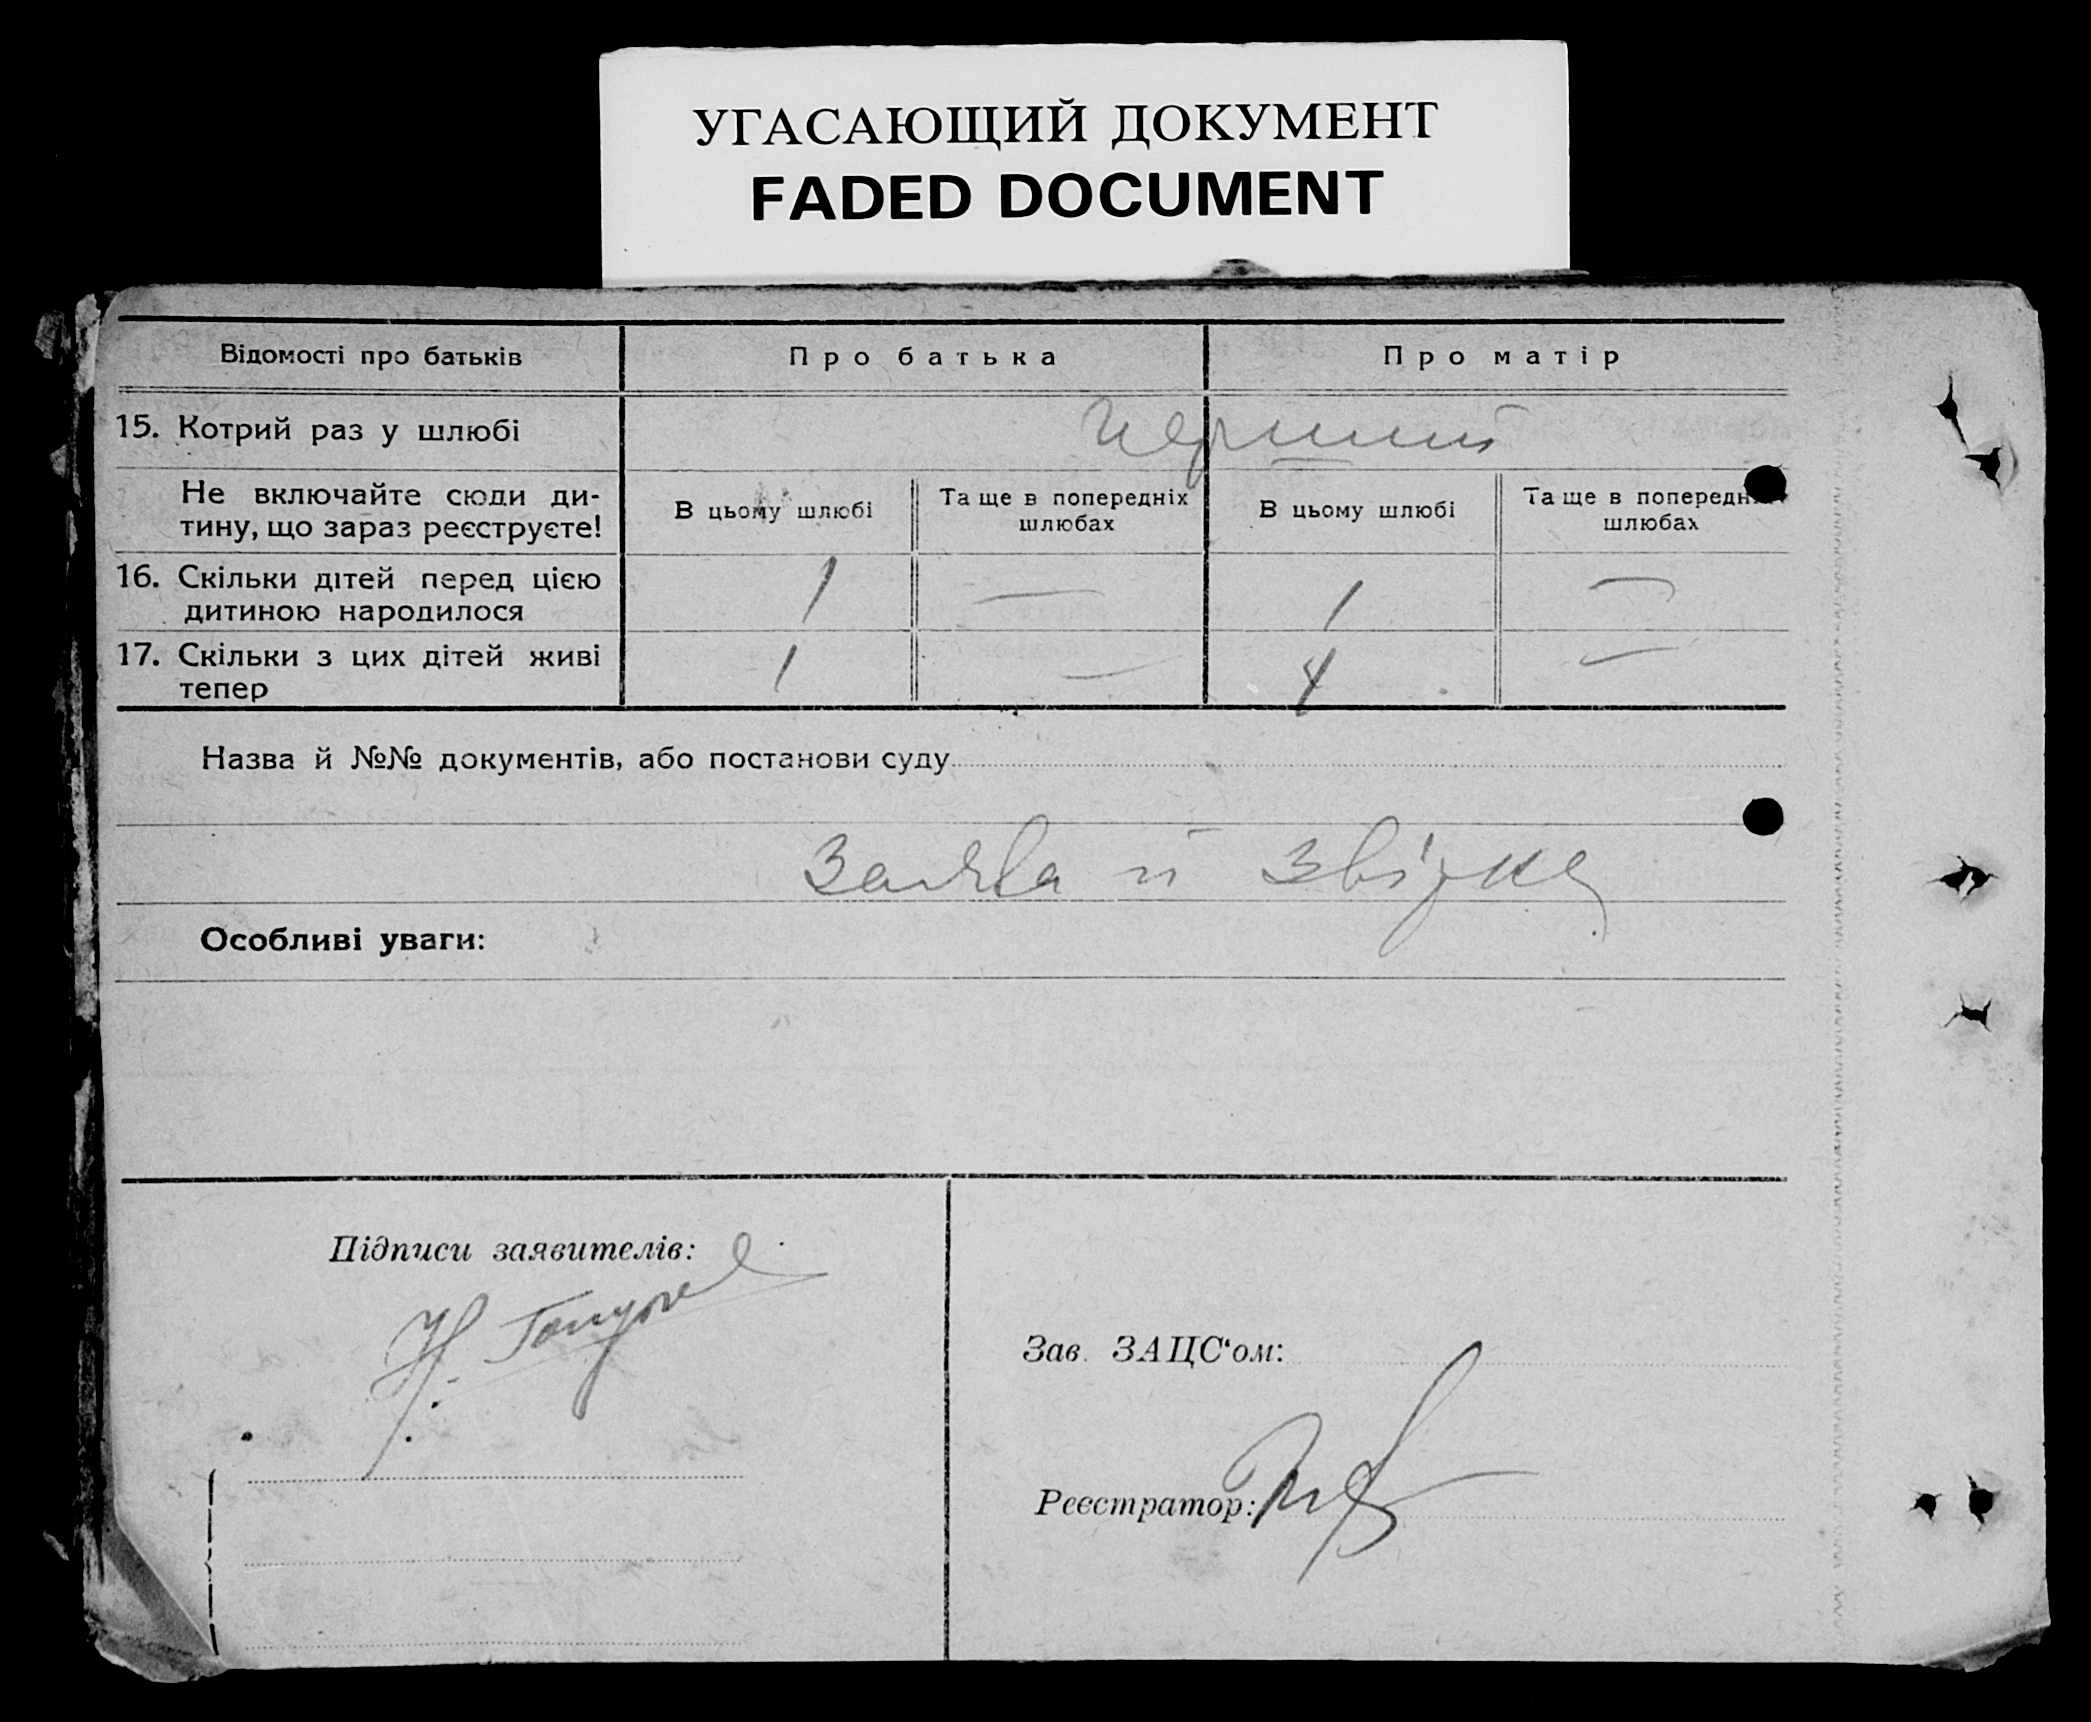 УГАСАЮЩИЙ ДОКУМЕНТ
FADED DOCUMENT
Відомості про батьків
Про батька
Про матір
15. Котрий раз у шлюбі
перший
Не включайте сюди ди-
тину, що зараз реєструєте!
В цьому шлюбі
Та ще в попередніх
шлюбах
В цьому шлюбі
Та ще в попередніх
шлюбах
16. Скільки дітей перед цією
дитиною народилося
1 — 1 —
17. Скільки з цих дітей живі
тепер
1 — —
Назва й №№ документів, або постанови суду
Заява й
Особливі уваги:
Підписи заявителів:
Зав. ЗАЦС‘ом:
Реєстратор: